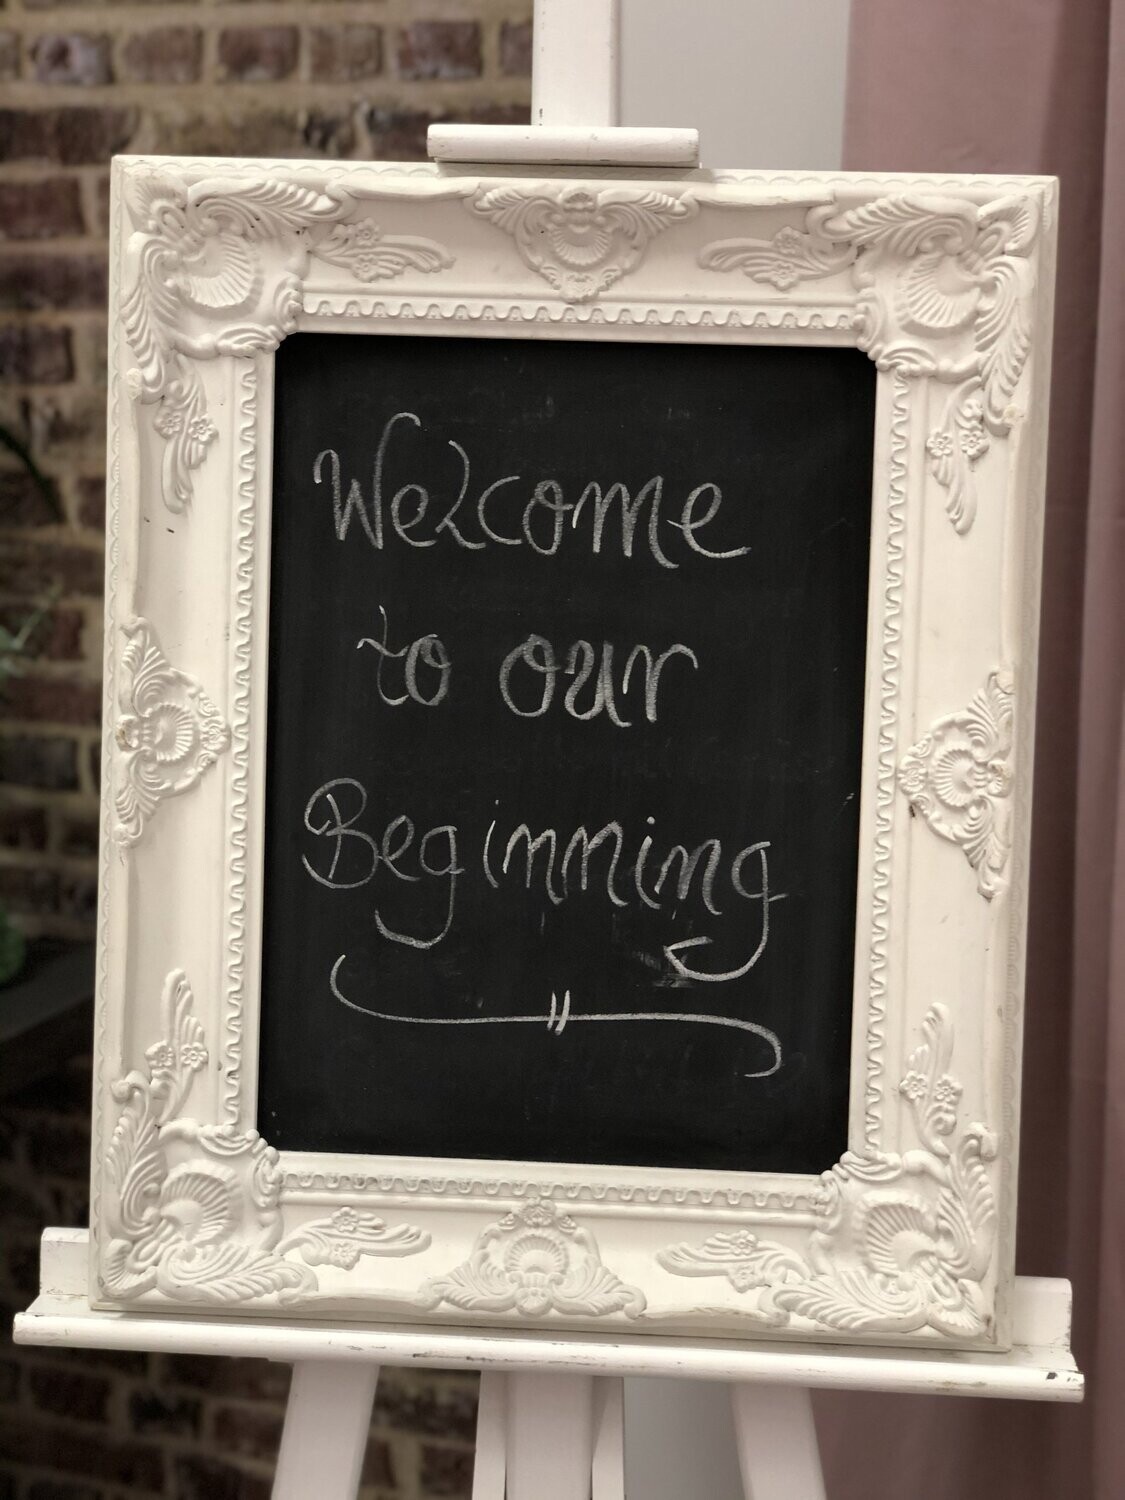 Welcome
to our
Beginning